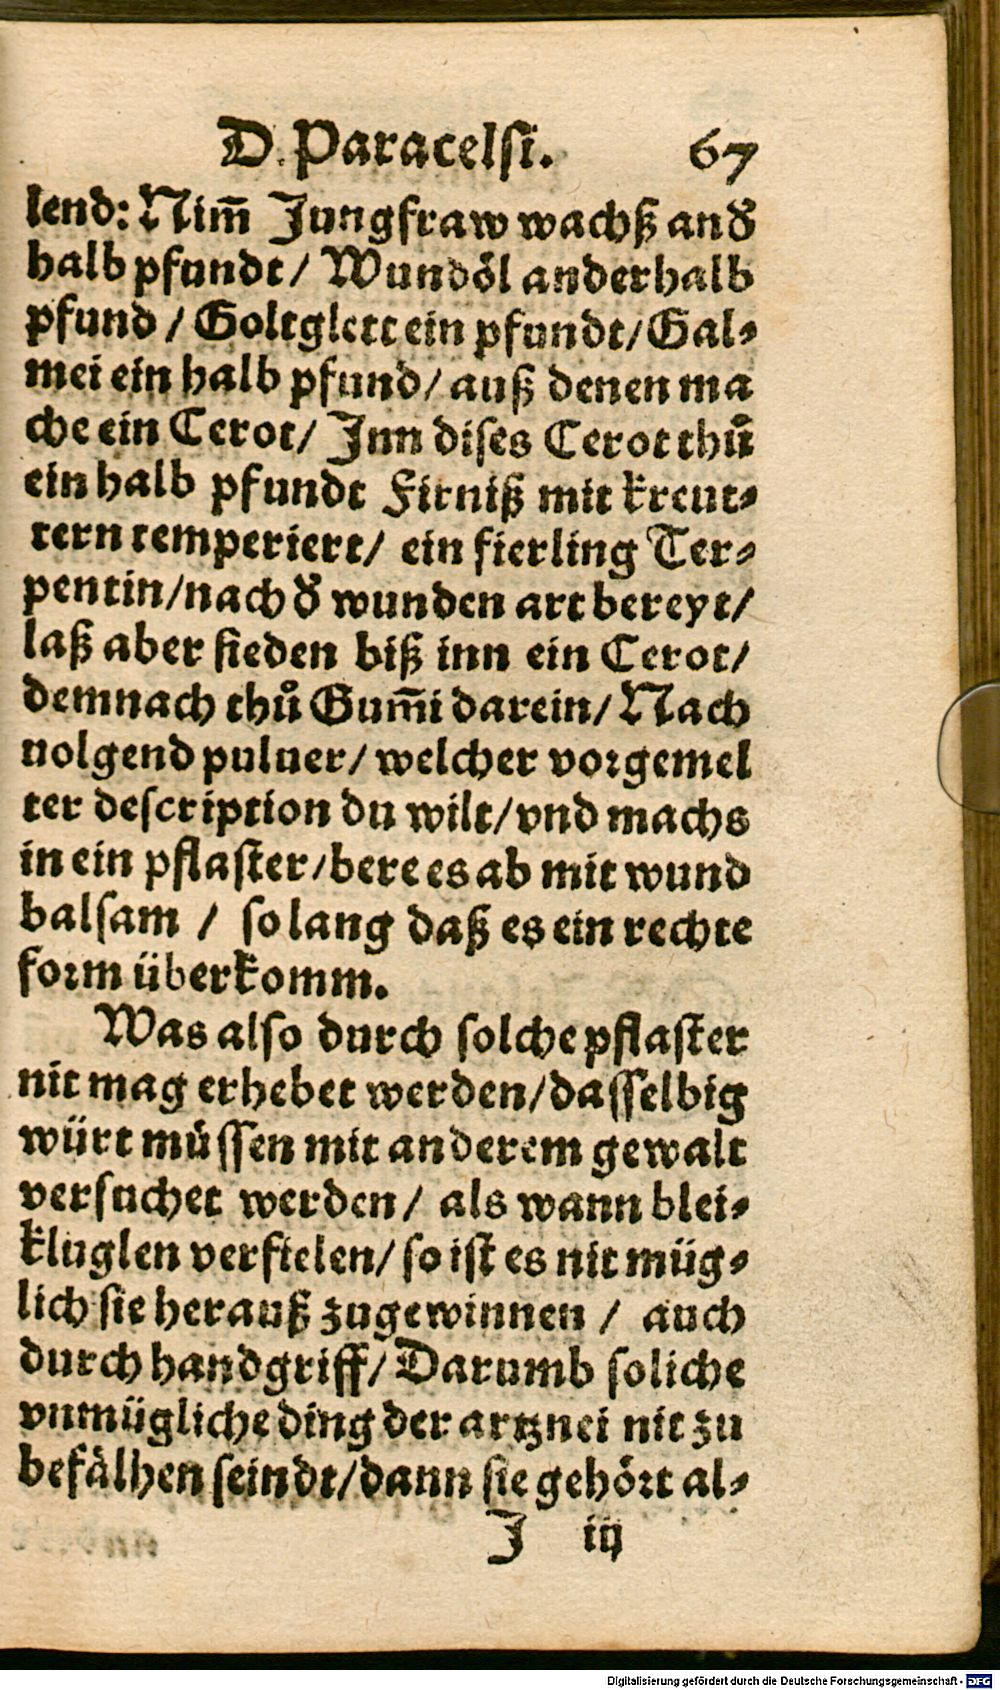 D. Paracelsi. 67
lend: Nim̃ Jungfraw wachß and
halb pfundt / Wundöl anderhalb
pfund / Goltglett ein pfundt / Gal⸗
mei ein halb pfund / auß denen ma
che ein Cerot / Jnn dises Cerot thů
ein halb pfundt Firniß mit kreut⸗
tern temperiert / ein fierling Ter⸗
pentin / nach d wunden art bereyt /
laß aber sieden biß inn ein Cerot /
demnach thů Gum̃i darein / Nach
uolgend puluer / welcher vorgemel
ter description du wilt / vnd machs
in ein pflaster / bere es ab mit wund
balsam / so lang daß es ein rechte
form überkomm.
Was also durch solche pflaster
nit mag erhebet werden / dasselbig
würt müssen mit anderem gewalt
versuchet werden / als wann blei⸗
kluglen verfielen / so ist es nit müg⸗
lich sie herauß zugewinnen / auch
durch handgriff / Darumb soliche
vnmügliche ding der artznei nit zu
befälhen seindt / dann sie gehört al⸗
J iij
Digitalisierung gefördert durch die Deutsche Forschungsgemeinschaft - DFG